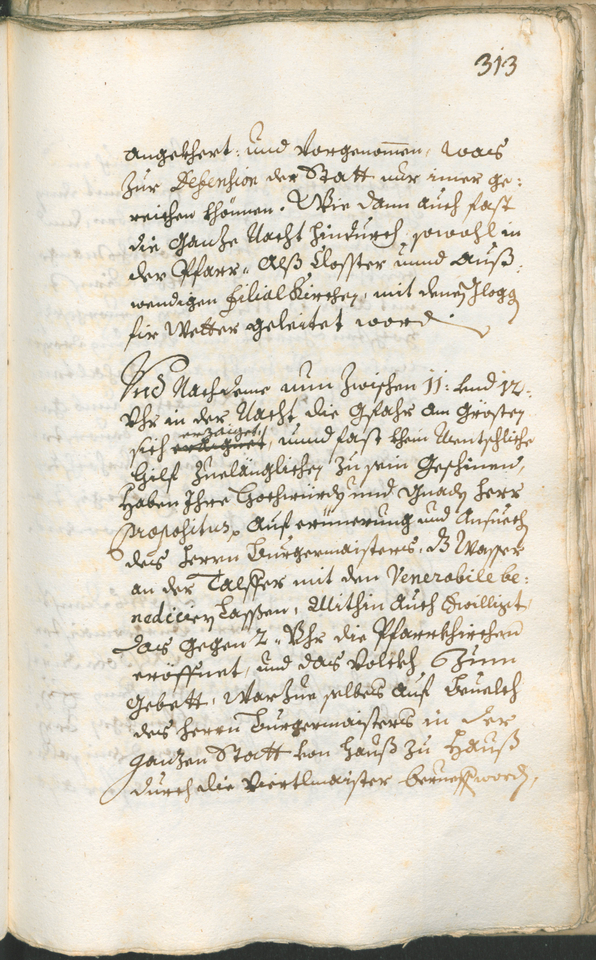 313
angekhert: und vorgenomen, was
zur Defension der Statt nur imer ge:
reichen khönen. Wie dann auch fast
die ganze Nacht hindurch, sowohl in
der Pfarr- Alß Closster unnd Auß:
wendigen Filial Kirchen, mit denen Glogg
fir Wetter geleitet word
Und Nachdeme nun zwischen 11: und 12:
Uhr in der Nacht die gfahr am grösten
erzaiget
sich unnd fast khein Mentschliche
hilf zuelänglichen zu sein geschinen,
haben Ihre hochwürdn und gnadn herr
Propositus, auf erinerung und ansuech
des herrn Burgermaisters, dz Wasser
an der Talffer mit den Venerabile be:
nediciern lassen, Mithin auch bewilliget
das gegen 2 Uhr die Pfarrkhirchen
eröffnet, und das volckh zum
gebett, warzue selbes auf beuelch
des herrn Burgermaisters in der
ganzen Statt von hauß zu hauß
durch die Viertlmaister berueff word,